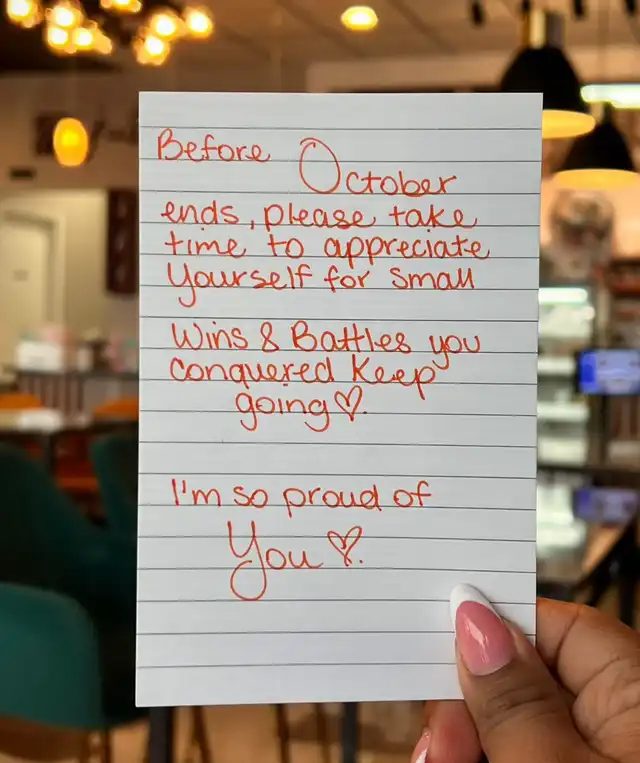 Before October
ends, please take
time to appreciate
Yourself for Small
Wins & Battles you
conquered Keep
going♡.
I'm so proud of
You♡.